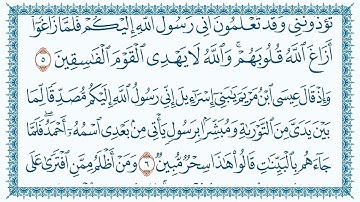 تُؤْذُونَنِى وَقَد تَّعْلَمُونَ أَنِّى رَسُولُ ٱللَّهِ إِلَيْكُمْ فَلَمَّا زَاغُوٓا۟
أَزَاغَ ٱللَّهُ قُلُوبَهُمْ وَٱللَّهُ لَا يَهْدِى ٱلْقَوْمَ ٱلْفَـٰسِقِينَ ٥
وَإِذْ قَالَ عِيسَى ٱبْنُ مَرْيَمَ يَـٰبَنِىٓ إِسْرَٰٓءِيلَ إِنِّى رَسُولُ ٱللَّهِ إِلَيْكُم مُّصَدِّقًا لِّمَا
بَيْنَ يَدَىَّ مِنَ ٱلتَّوْرَىٰةِ وَمُبَشِّرًۢا بِرَسُولٍ يَأْتِى مِنۢ بَعْدِى ٱسْمُهُۥٓ أَحْمَدُ فَلَمَّا
جَآءَهُم بِٱلْبَيِّنَـٰتِ قَالُوا۟ هَـٰذَا سِحْرٌ مُّبِينٌ ٦ وَمَنْ أَظْلَمُ مِمَّنِ ٱفْتَرَىٰ عَلَى